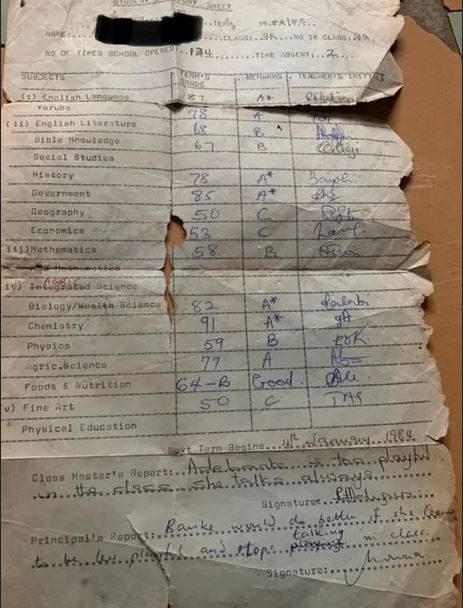 STUDENT'S REPORT SHEET
TERM
NAME: CLASS: NO IN CLASS:
NO OF TIMES SCHOOL OPENED: 134 TIME ABSENT: 2
SUBJECTS TERM'S GRADE REMARKS TEACHER'S
(i) English Language 87 A*
Yoruba 78 A
(ii) English Literature 68 B
Bible Knowledge 67 B
Social Studies
History 78 A*
Government 85 A*
Geography 50 C
Economics 53 C
(iii) Mathematics 58 B
Mathematics
iv) Integrated Science
Biology/Health Science 82 A*
Chemistry 91 A*
Physics 59 B
Agric.Science 77 A
Foods & Nutrition 64-B Good
v) Fine Art 50 C
Physical Education
Next Term Begins 4th January 1984
Class Master's Report: Adebanke is too playful
in the class. She talks always.
Signature:
Principal's Report: Banke would do better if she learns
to be less playful and stops talking in class.
Signature: